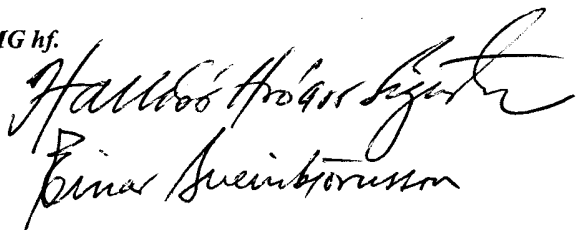 MG hf.
Halldór Hróarr Sigurðs
Einar Sveinbjörnsson